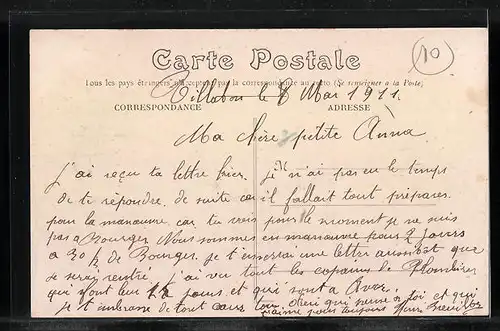 Carte Postale
10
Tous les pays étrangers n'acceptent pas la correspondance au recto (Se renseigner à la Poste)
Villabon le 8 Mai 1911
CORRESPONDANCE ADRESSE
Ma chère petite Anna
j'ai reçu ta lettre hier. je n'ai pas eu le temps
de te répondre de suite car il fallait tout préparer
pour la manœuvre car tu vois pour le moment je ne suis
pas a Bourges Nous sommes en manœuvre pour 2 jours
a 30 k de Bourges je t'enverrai une lettre aussitot que
je serai rentré j'ai vu tout les copains de Plombières
qui font leur jours et qui sont a Avor
je t'embrasse de tout cœur ton chéri qui pense a toi et qui
t'aime pour toujours